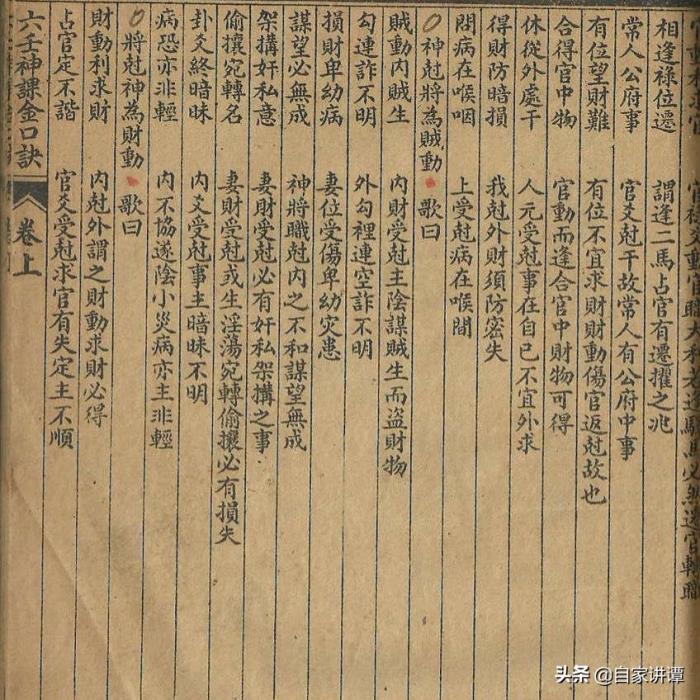 相逢祿位遷　謂逢二馬占官有遷擢之兆
常人公府事　官爻尅干故常人有公府中事
有位望財難　有位不宜求財財動傷官返尅故也
合得官中物　官動而逢合官中財物可得
休從外處干　人元受尅事在自己不宜外求
得財防暗損　我尅外財須防密失
閉病在喉咽　上受尅病在喉間
神尅將為賊動　歌曰
賊動內賊生　內財受尅主陰謀賊生而盜財物
勾連詐不明　外勾裡連空詐不明
損財卑幼病　妻位受傷卑幼灾患
謀望必無成　神將職尅內之不和謀望無成
架搆奸私意　妻財受尅必有奸私架搆之事
偷攘宛轉名　妻財受尅或生淫蕩宛轉偷攘必有損失
卦爻終暗昧　內爻受尅事主暗昧不明
病恐亦非輕　內不協遂陰小災病亦主非輕
將尅神為財動　歌曰
財動利求財　內尅外謂之財動求財必得
占官定不諧　官爻受尅求官有失定主不順
六壬神課金口訣　卷上
头条 @自家讲谭